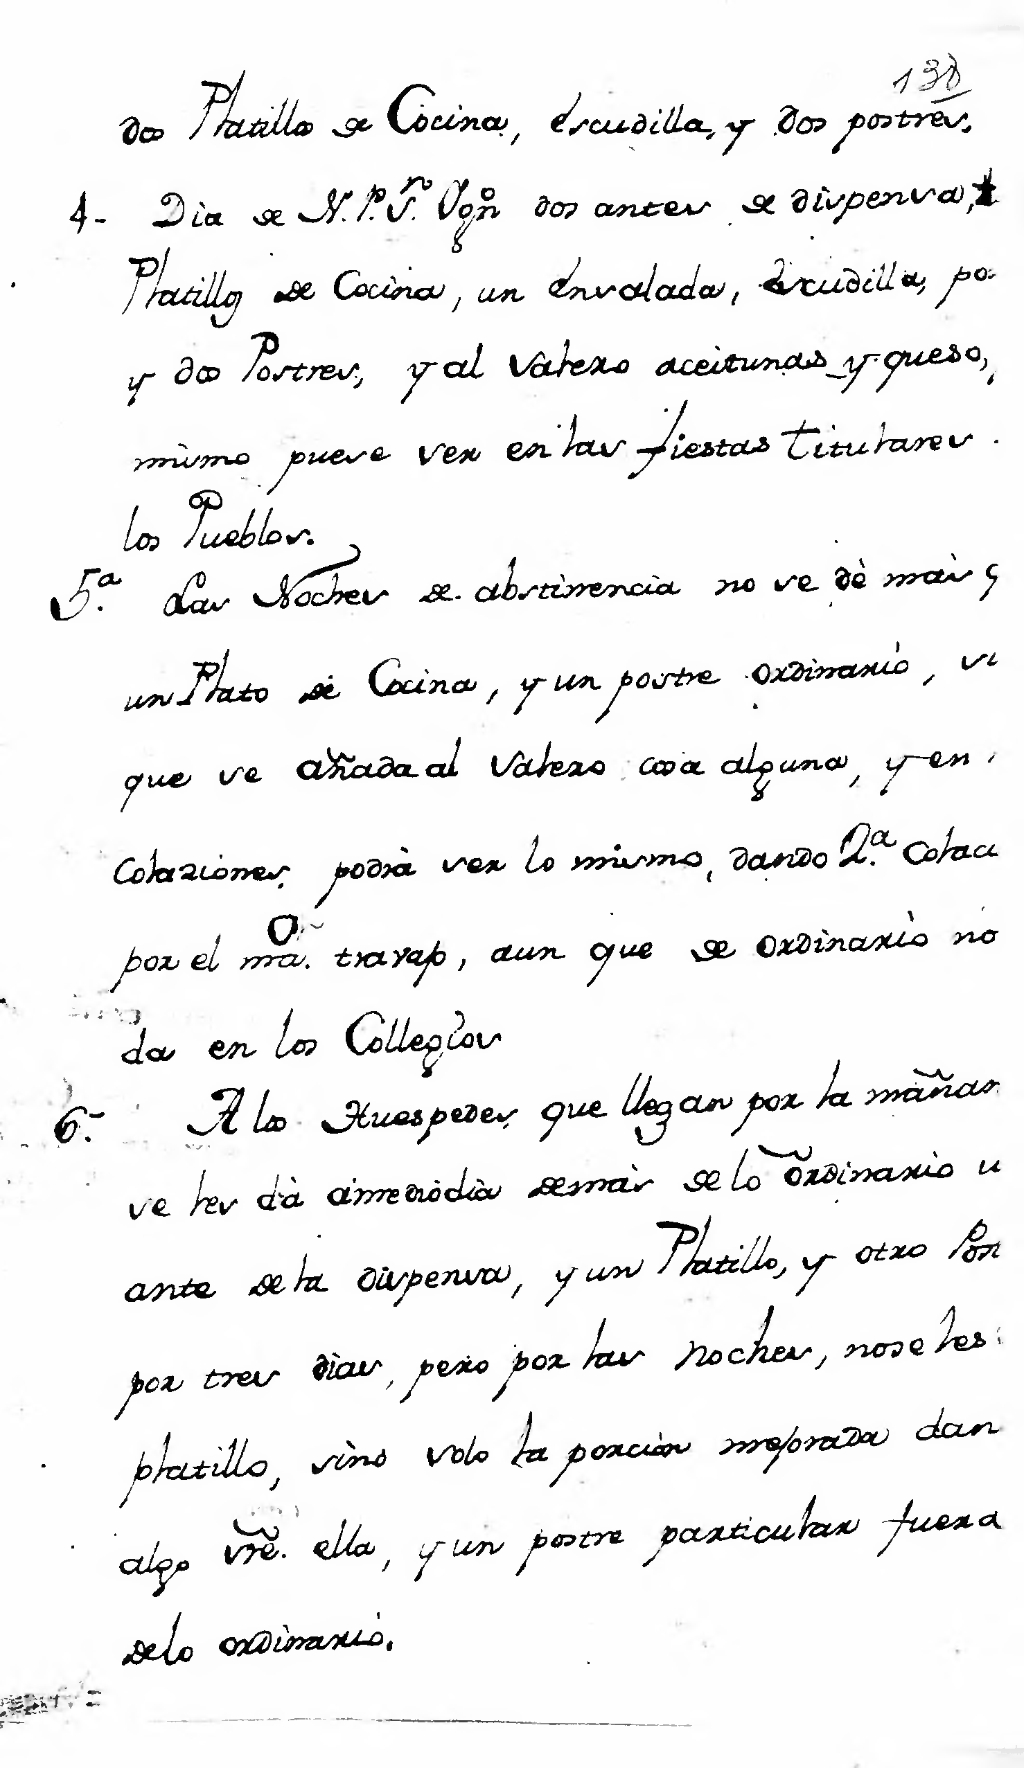 138
dos Platillos de Cocina, escudilla, y dos postres.
4- Dia de N. P. Sn. Ygn dos antes de dispensa,
Platillos de Cocina, un ensalada, escudilla, po
y dos Postres, y al Salero aceitunas y queso,
mismo puese ser en las fiestas titulares
los Pueblos.
5.ª Las Noches de abstinencia no se dè mas q
un Plato de Cocina, y un postre ordinario, si
que se añada al Salero cosa alguna, y en
Colaziones, podrà ser lo mismo, dando 2.ª Colaci
por el mãOr. travajo, aun que de ordinario no
da en los Collegios
6.- A los Huespedes, que llegan por la mañan
se les dà à mediodia demàs de lo ordinario u
ante de la dispensa, y un Platillo, y otro Pos
por tres dias, pero por las noches, no se les
platillo, sino solo la porcion mejorada dan
algo sre. ella, y un postre particular fuera
de lo ordinario.